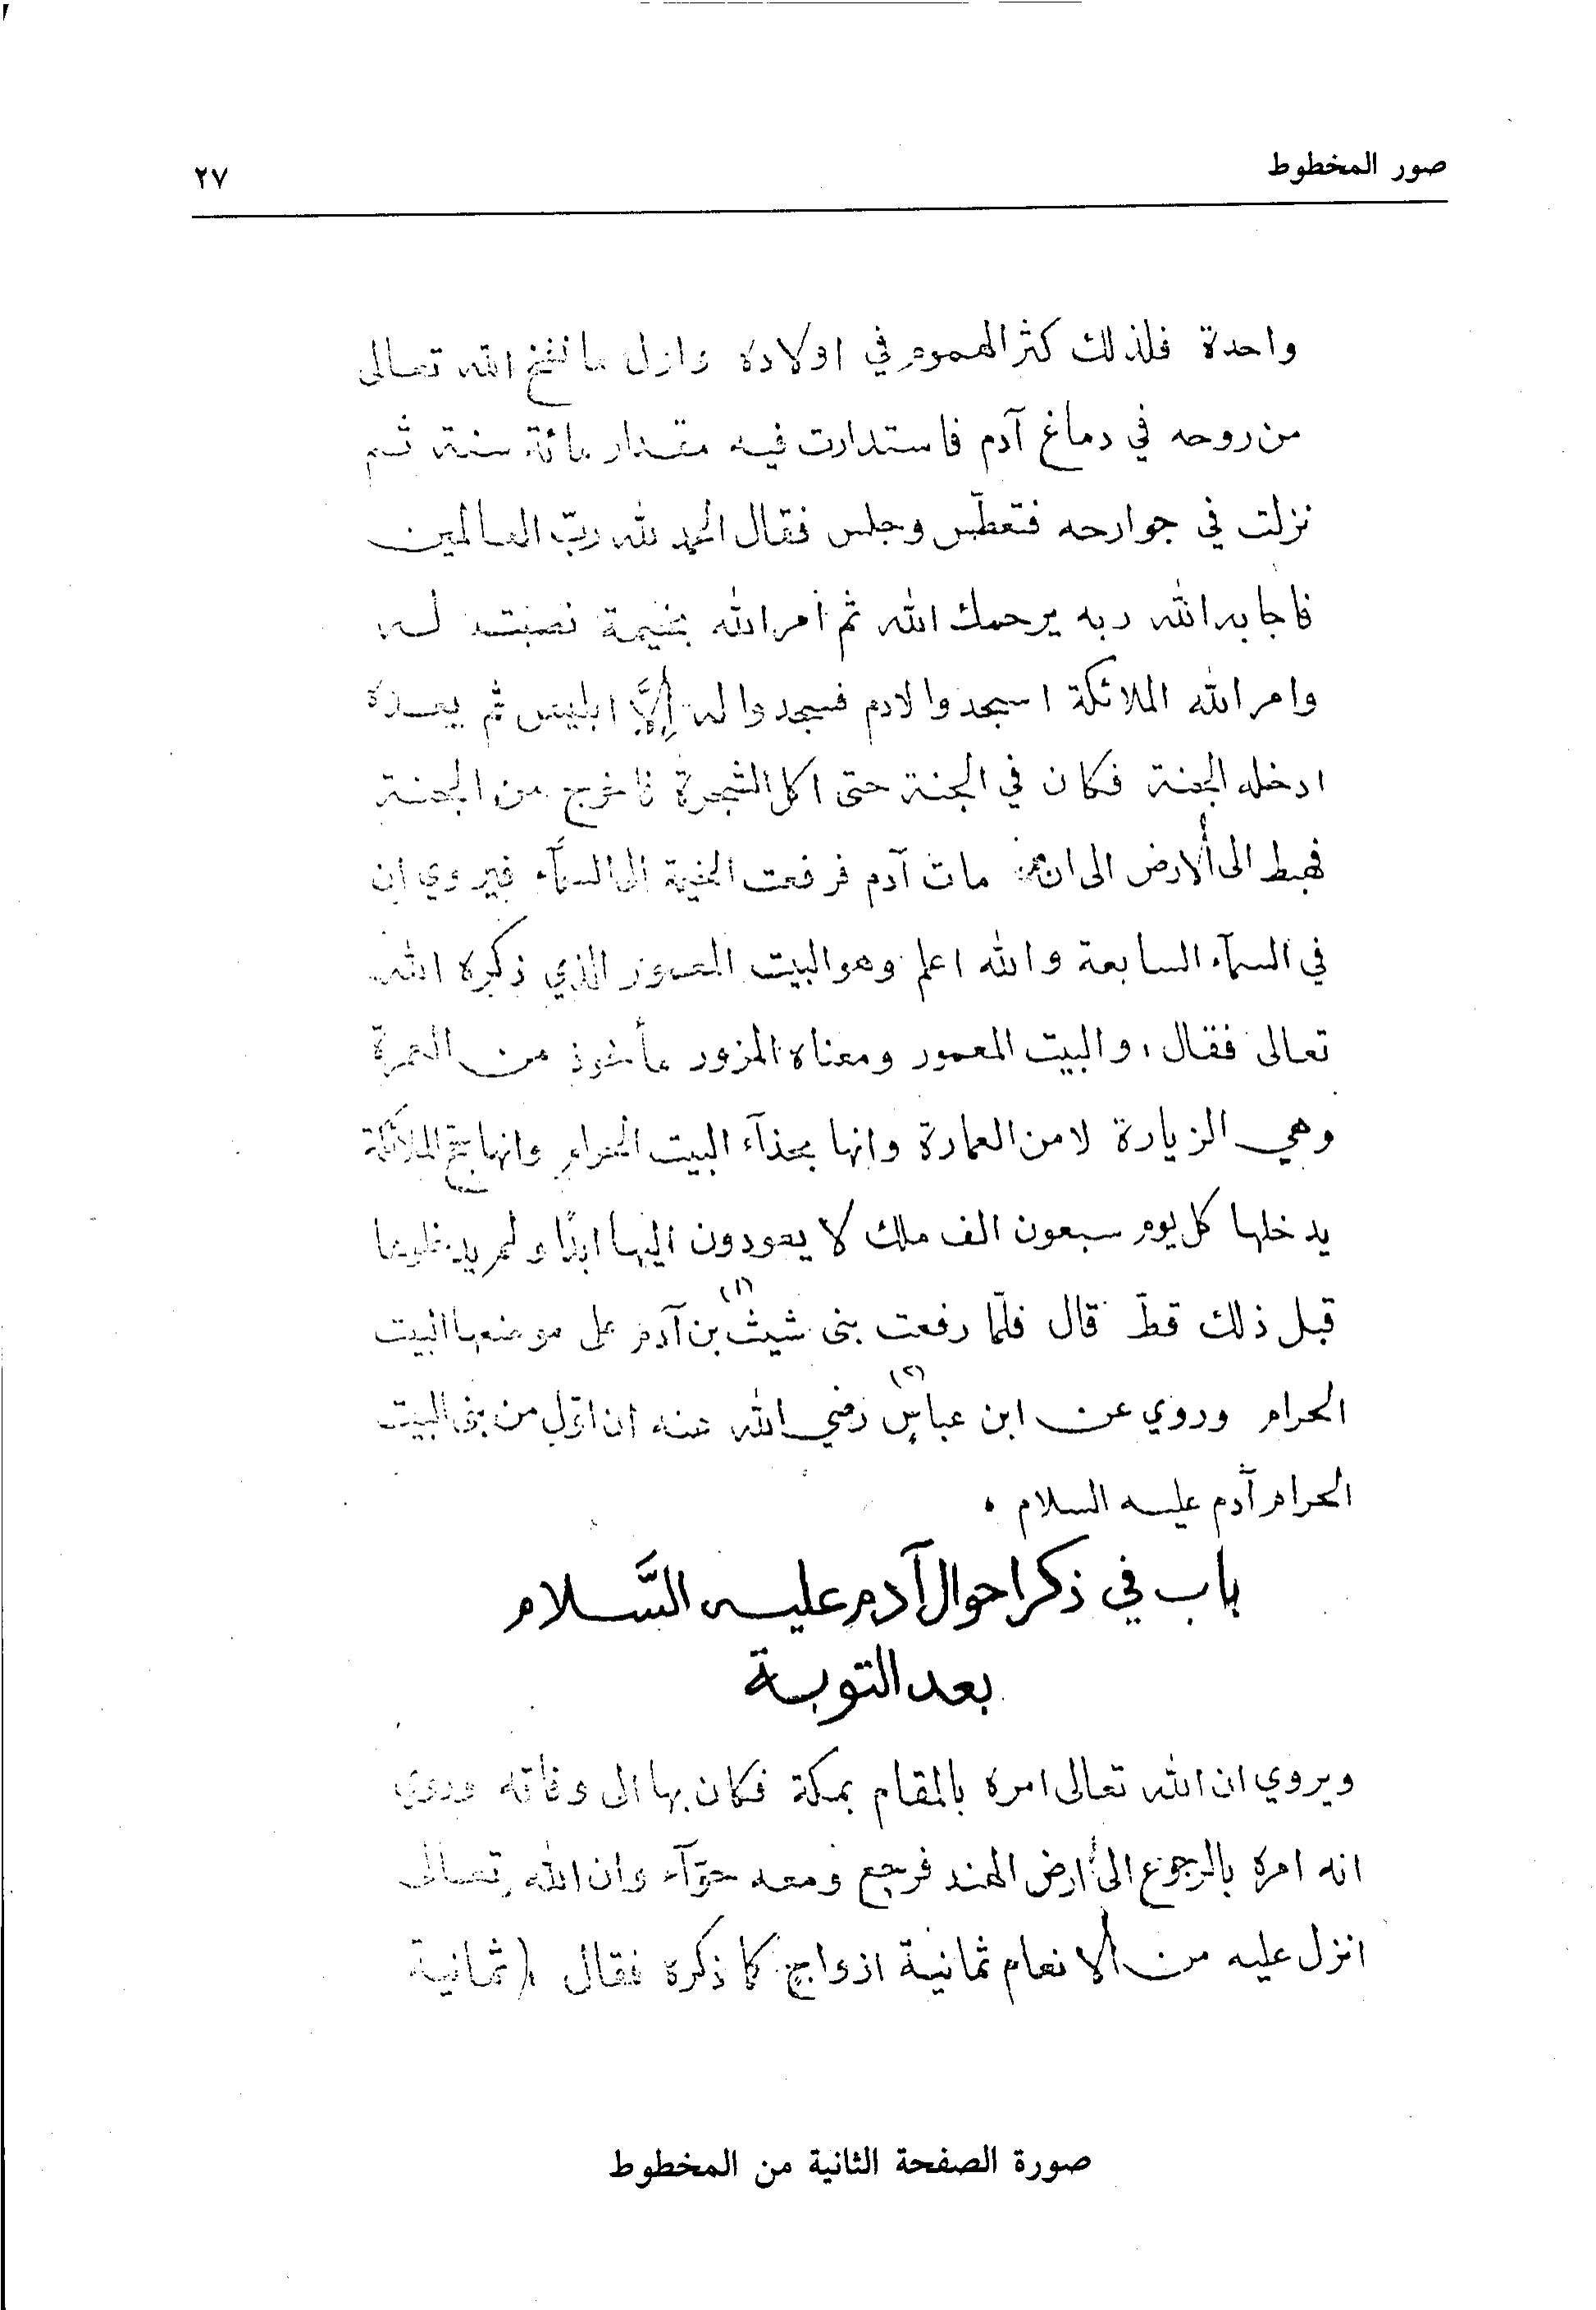 صور المخطوط
٢٧
واحدة فلذلك كثر الهموم في اولاده واول ما نفخ الله تعالى
من روحه في دماغ آدم فاستدارت فيه مقدار مائة سنة ثم
نزلت في جوارحه فتعطّس وجلس فقال الحمد لله ربّ العالمين
فاجابه الله ربه يرحمك الله ثم أمر الله بخيمة نصبت له
وامر الله الملائكة اسجدوا لادم فسجدوا له إلاَّ ابليس ثم بعده
ادخله الجنة فكان في الجنة حتى اكل الشجرة فاخرج من الجنة
فهبط الى ألارض الى ان مات آدم فرفعت الخيمة الى السمآء فيروي ان
في السمآء السابعة والله اعلم وهو البيت المعمور الذي ذكره الله
تعالى فقال، والبيت المعمور ومعناه المزور مأخوذ من العمرة
وهي الزيارة لا من العمارة وانها بحذآء البيت الحرام وانها الملائكة
يدخلها كل يوم سبعون الف ملك لا يعودون اليها ابدًا ولم يدخلوها
قبل ذلك قطّ قال فلمّا رفعت بنى شيث (١) بن آدم على موضعها البيت
الحرام وروي عن ابن عباسٍ (٢) رضي الله عنه ان اوّل من بنى البيت
الحرام آدم عليه السلام .
باب في ذكر احوال آدم عليه السَّلام
بعد التوبة
ويروي ان الله تعالى امره بالمقام بمكة فكان بها الى وفاته وروي
انه امره بالرجوع الى أرض الهند فرجع ومعه حوّآء وان الله تعالى
انزل عليه من ألانعام ثمانية ازواج كما ذكره فقال (ثمانية
صورة الصفحة الثانية من المخطوط